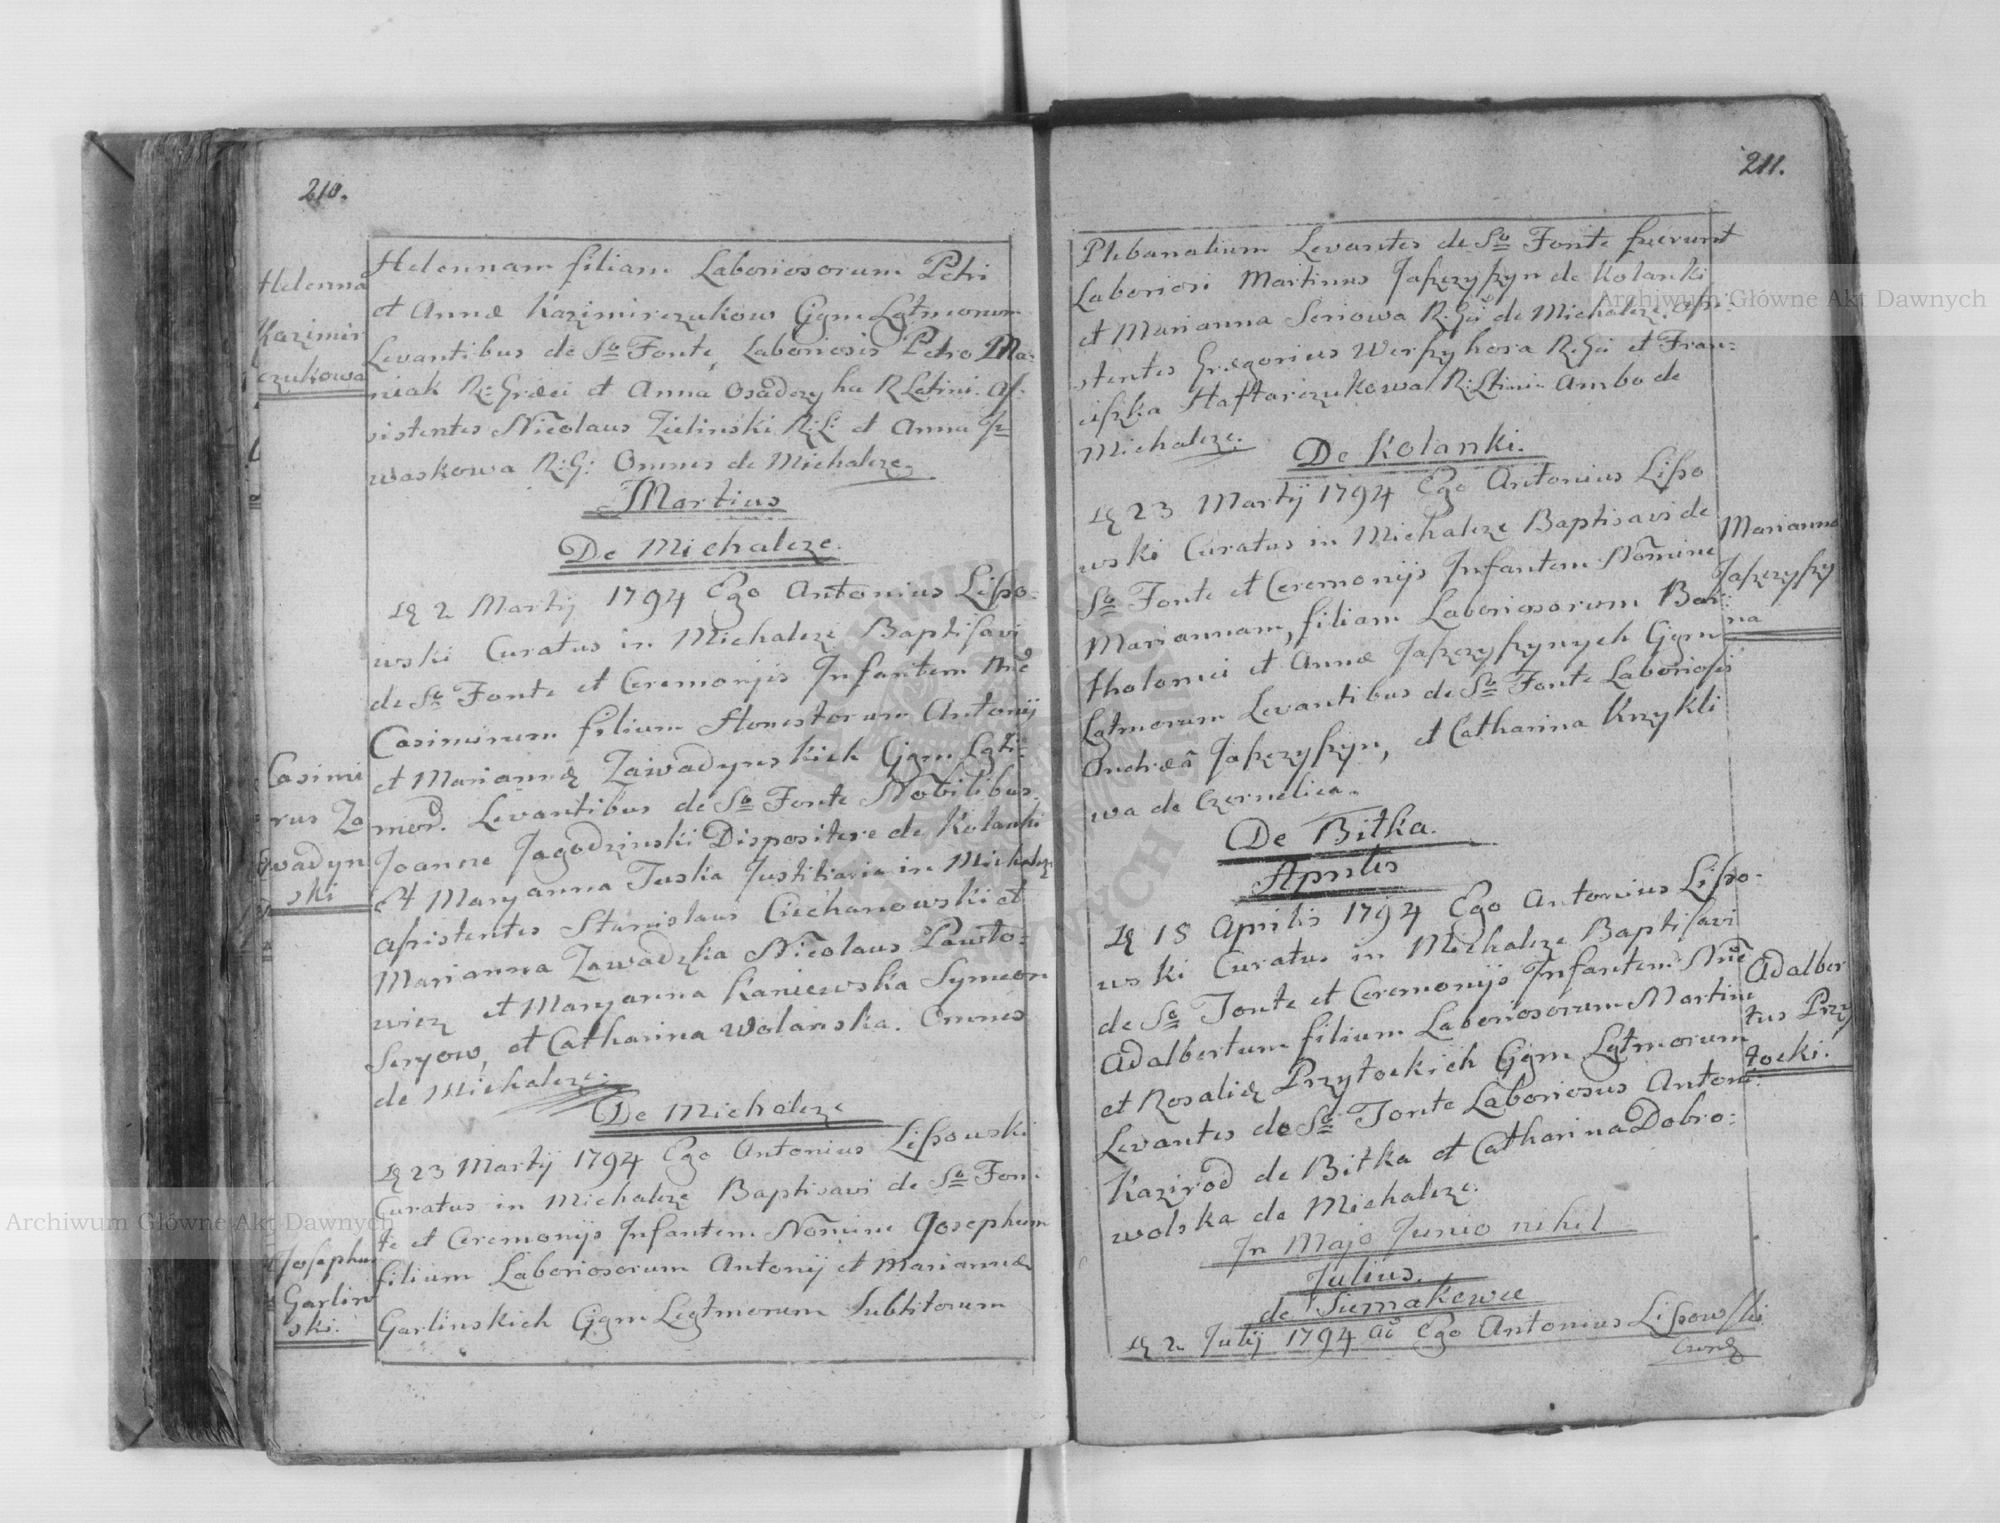 210.
Helenna
Kazimir
czukowa
Helennam filiam Laboriosorum Petri
et Annæ Kazimirczukow Cgm Lgtmeorum
Levantibus de So Fonte, Laboriosis Petro Ma-
niak R: Græci et Anna Osadczyha R Latini. As-
sistentes Nicolaus Zielinski R: L: et Anna
waskowa R: G: Omnes de Michalcze
Martius
De Michalcze.
2 Martij 1794 Ego Antonius Lisso-
wski Curatus in Michalcze Baptisavi
de So Fonte et Ceremonijs Infantem Nne
Casimirum filium Honestorum Antonij
et Mariannæ Zawadynskich Cgm Lgti-
mor. Levantibus de So Fonte Nobilibus
Joanne Jagodzinski Dispositore de Kolanki
Et Maryanna Tuska Justitiaria in Michalcze
Casimi
rus Za
wadyn
ski
assistentes Stanislaus Ciechanowski et
Marianna Zawadzka Nicolaus Pawlo-
wicz et Maryanna Kaniewska Symeon
Seryow, et Catharina Wolanska. Omnes
de Michalcze.
De Michalcze
23 Martij 1794 Ego Antonius Lissowski
Curatus in Michalcze Baptisavi de So Fon-
te et Ceremonijs Infantem Nomine Josephum
filium Laboriosorum Antonij et Mariannæ
Garlinskich Cgm Legtmorum Subtitorum
Josephus
Garlin
ski.
211.
Plebanalium Levantes de So Fonte fuerunt
Laboriosi Martinus Jaszczyszyn de Kolanki
et Marianna Seriowa R: Gri de Michalcze, Assi-
stentes Gregorius Werszyhora R: Gri et Fran-
ciszka Haftarczukowa R: Ltini Ambo de
Michalcze.
De Kolanki.
23 Martij 1794 Ego Antonius Lisso
wski Curatus in Michalcze Baptisavi de
So Fonte et Ceremonijs Infantem Nomine
Mariannam, filiam Laboriosorum Bar-
tholomei et Annæ Jaszczyszynych Cgm
Lgtmorum Levantibus de So Fonte Laboriosis
Andreâ Jaszczyszyn, et Catharina Krzykli
wa de Czernelica.
Marianna
Jaszczyszy
na
De Bitka.
Aprilis
15 Aprilis 1794 Ego Antonius Lisso-
wski Curatus in Michalcze Baptisavi
de So Fonte et Ceremonijs Infantem Nne
Adalbertum filium Laboriosorum Martini
et Rosaliæ Przytockich Cgm Lgtmorum
Levantes de So Fonte Laboriosus Anton
Kazirod de Bitka et Catharina Dobro-
wolska de Michalcze.
Adalber
tus Przy
tocki.
In Majo Junio nihil
Julius.
de Siemakowce
2 Julij 1794 Ao Ego Antonius Lissowski
Archiwum Główne Akt Dawnych
Archiwum Główne Akt Dawnych